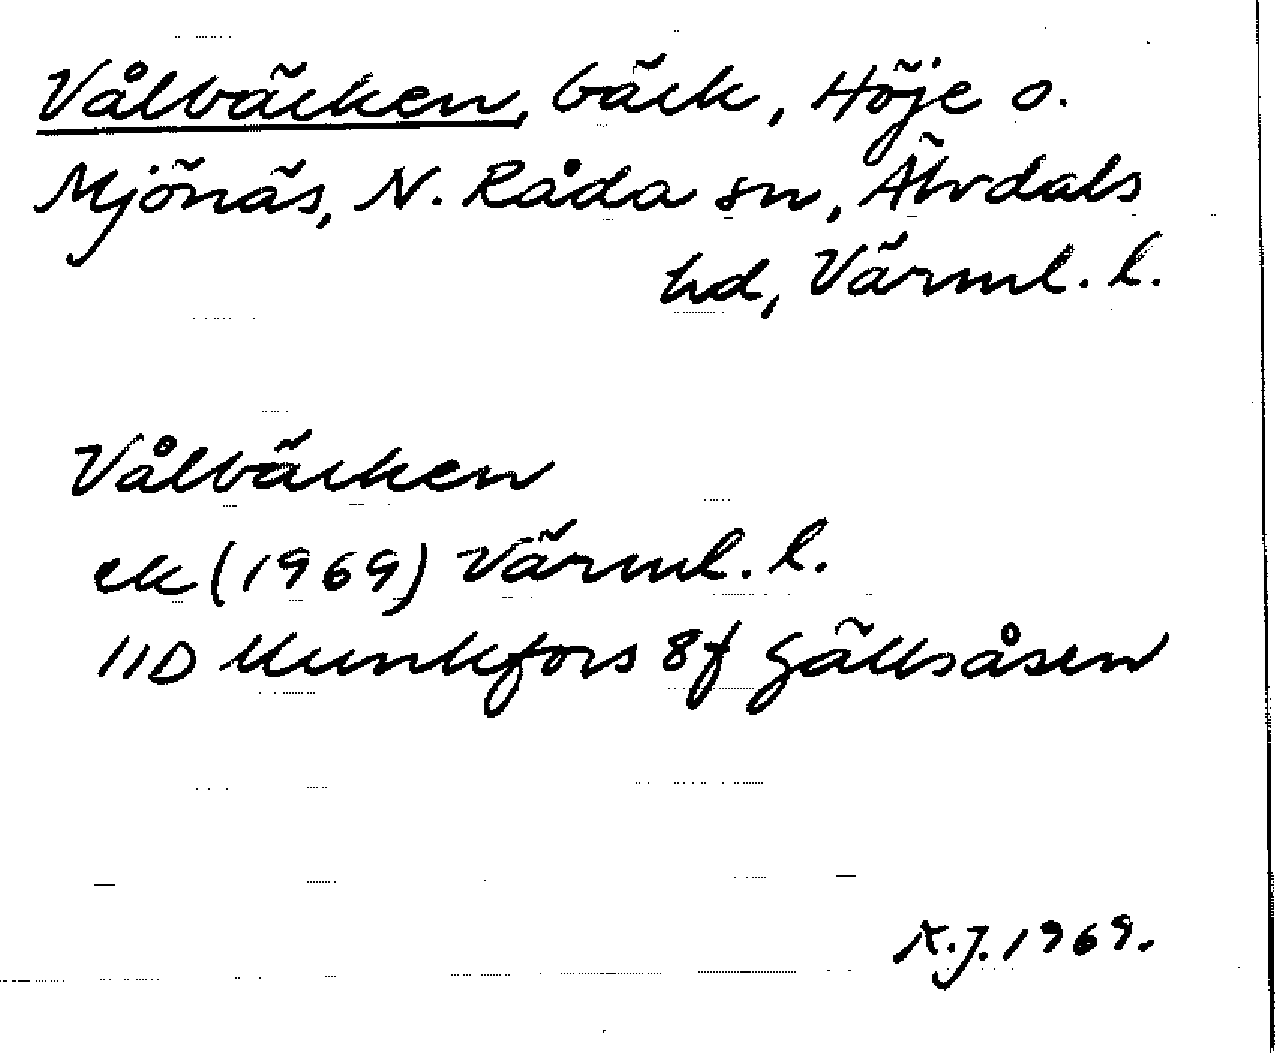 Vålbäcken, bäck, Höje o.
Mjönäs, N. Råda sn, Älvdals
hd, Värml. l.
Vålbäcken
ek (1969) Värml. l.
11D Munkfors 8f Gällsåsen
K.J. 1969.